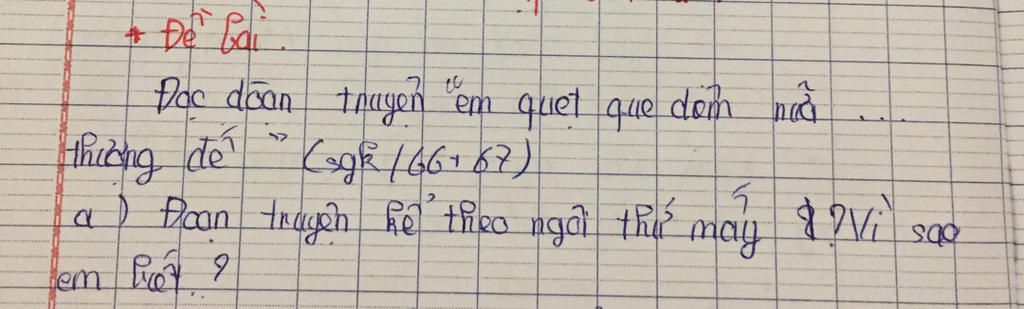 * Đề bài.
Đọc đoạn truyện "em quẹt que diêm nữa ...
thượng đế" (sgk/66+67)
a) Đoạn truyện kể theo ngôi thứ mấy ? Vì sao
em biết ?